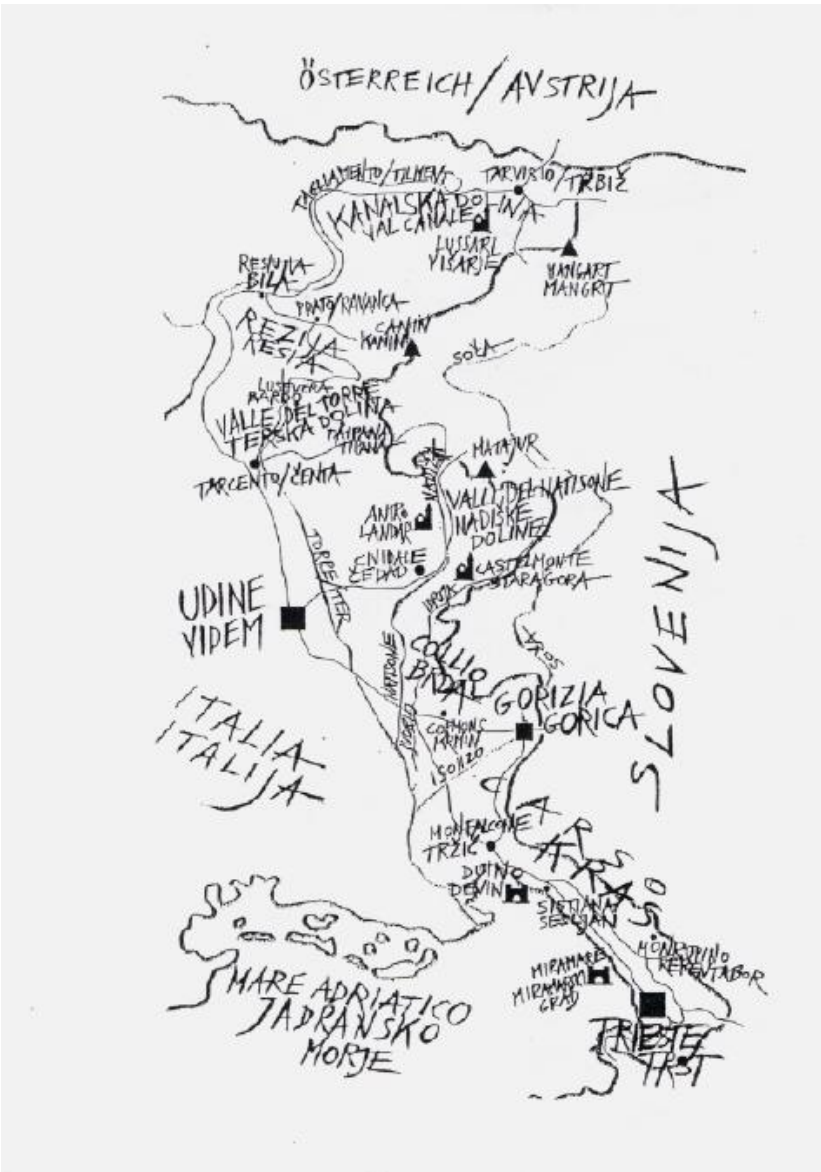 ÖSTERREICH/AVSTRIJA
TAGLIAMENTO/TILMENT
TARVISIO/TRBIŽ
KANALSKA DOLINA
VAL CANALE
LUSSARI
VIŠARJE
MANGART
MANGRT
RESIUTTA
BILA
PRATO/RAVANCA
REZIJA
RESIA
CANIN
KANIN
SOČA
LUSEVERA
BARDO
VALLE DEL TORRE
TERSKA DOLINA
TAIPANA
TIPANA
TARCENTO/ČENTA
NADIŽA
MATAJUR
VALLI DEL NATISONE
NADIŠKE
DOLINE
ANTRO
LANDAR
CIVIDALE
ČEDAD
CASTELMONTE
STARAGORA
TORRE/TER
IDRIJA
UDINE
VIDEM
NATISONE
SLOVENIJA
COLLIO
BRDA
GORIZIA
GORICA
CORMONS
KRMIN
ITALIA
ITALIJA
ISONZO
CARSO
KRAS
MONFALCONE
TRŽIČ
DUINO
DEVIN
SISTIANA
SESLJAN
MONRUPINO
REPENTABOR
MIRAMARE
MIRAMARSKI
GRAD
MARE ADRIATICO
JADRANSKO
MORJE
TRIESTE
TRST